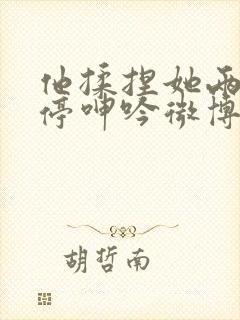 他揉捏她两
停呻吟微博
胡哲南